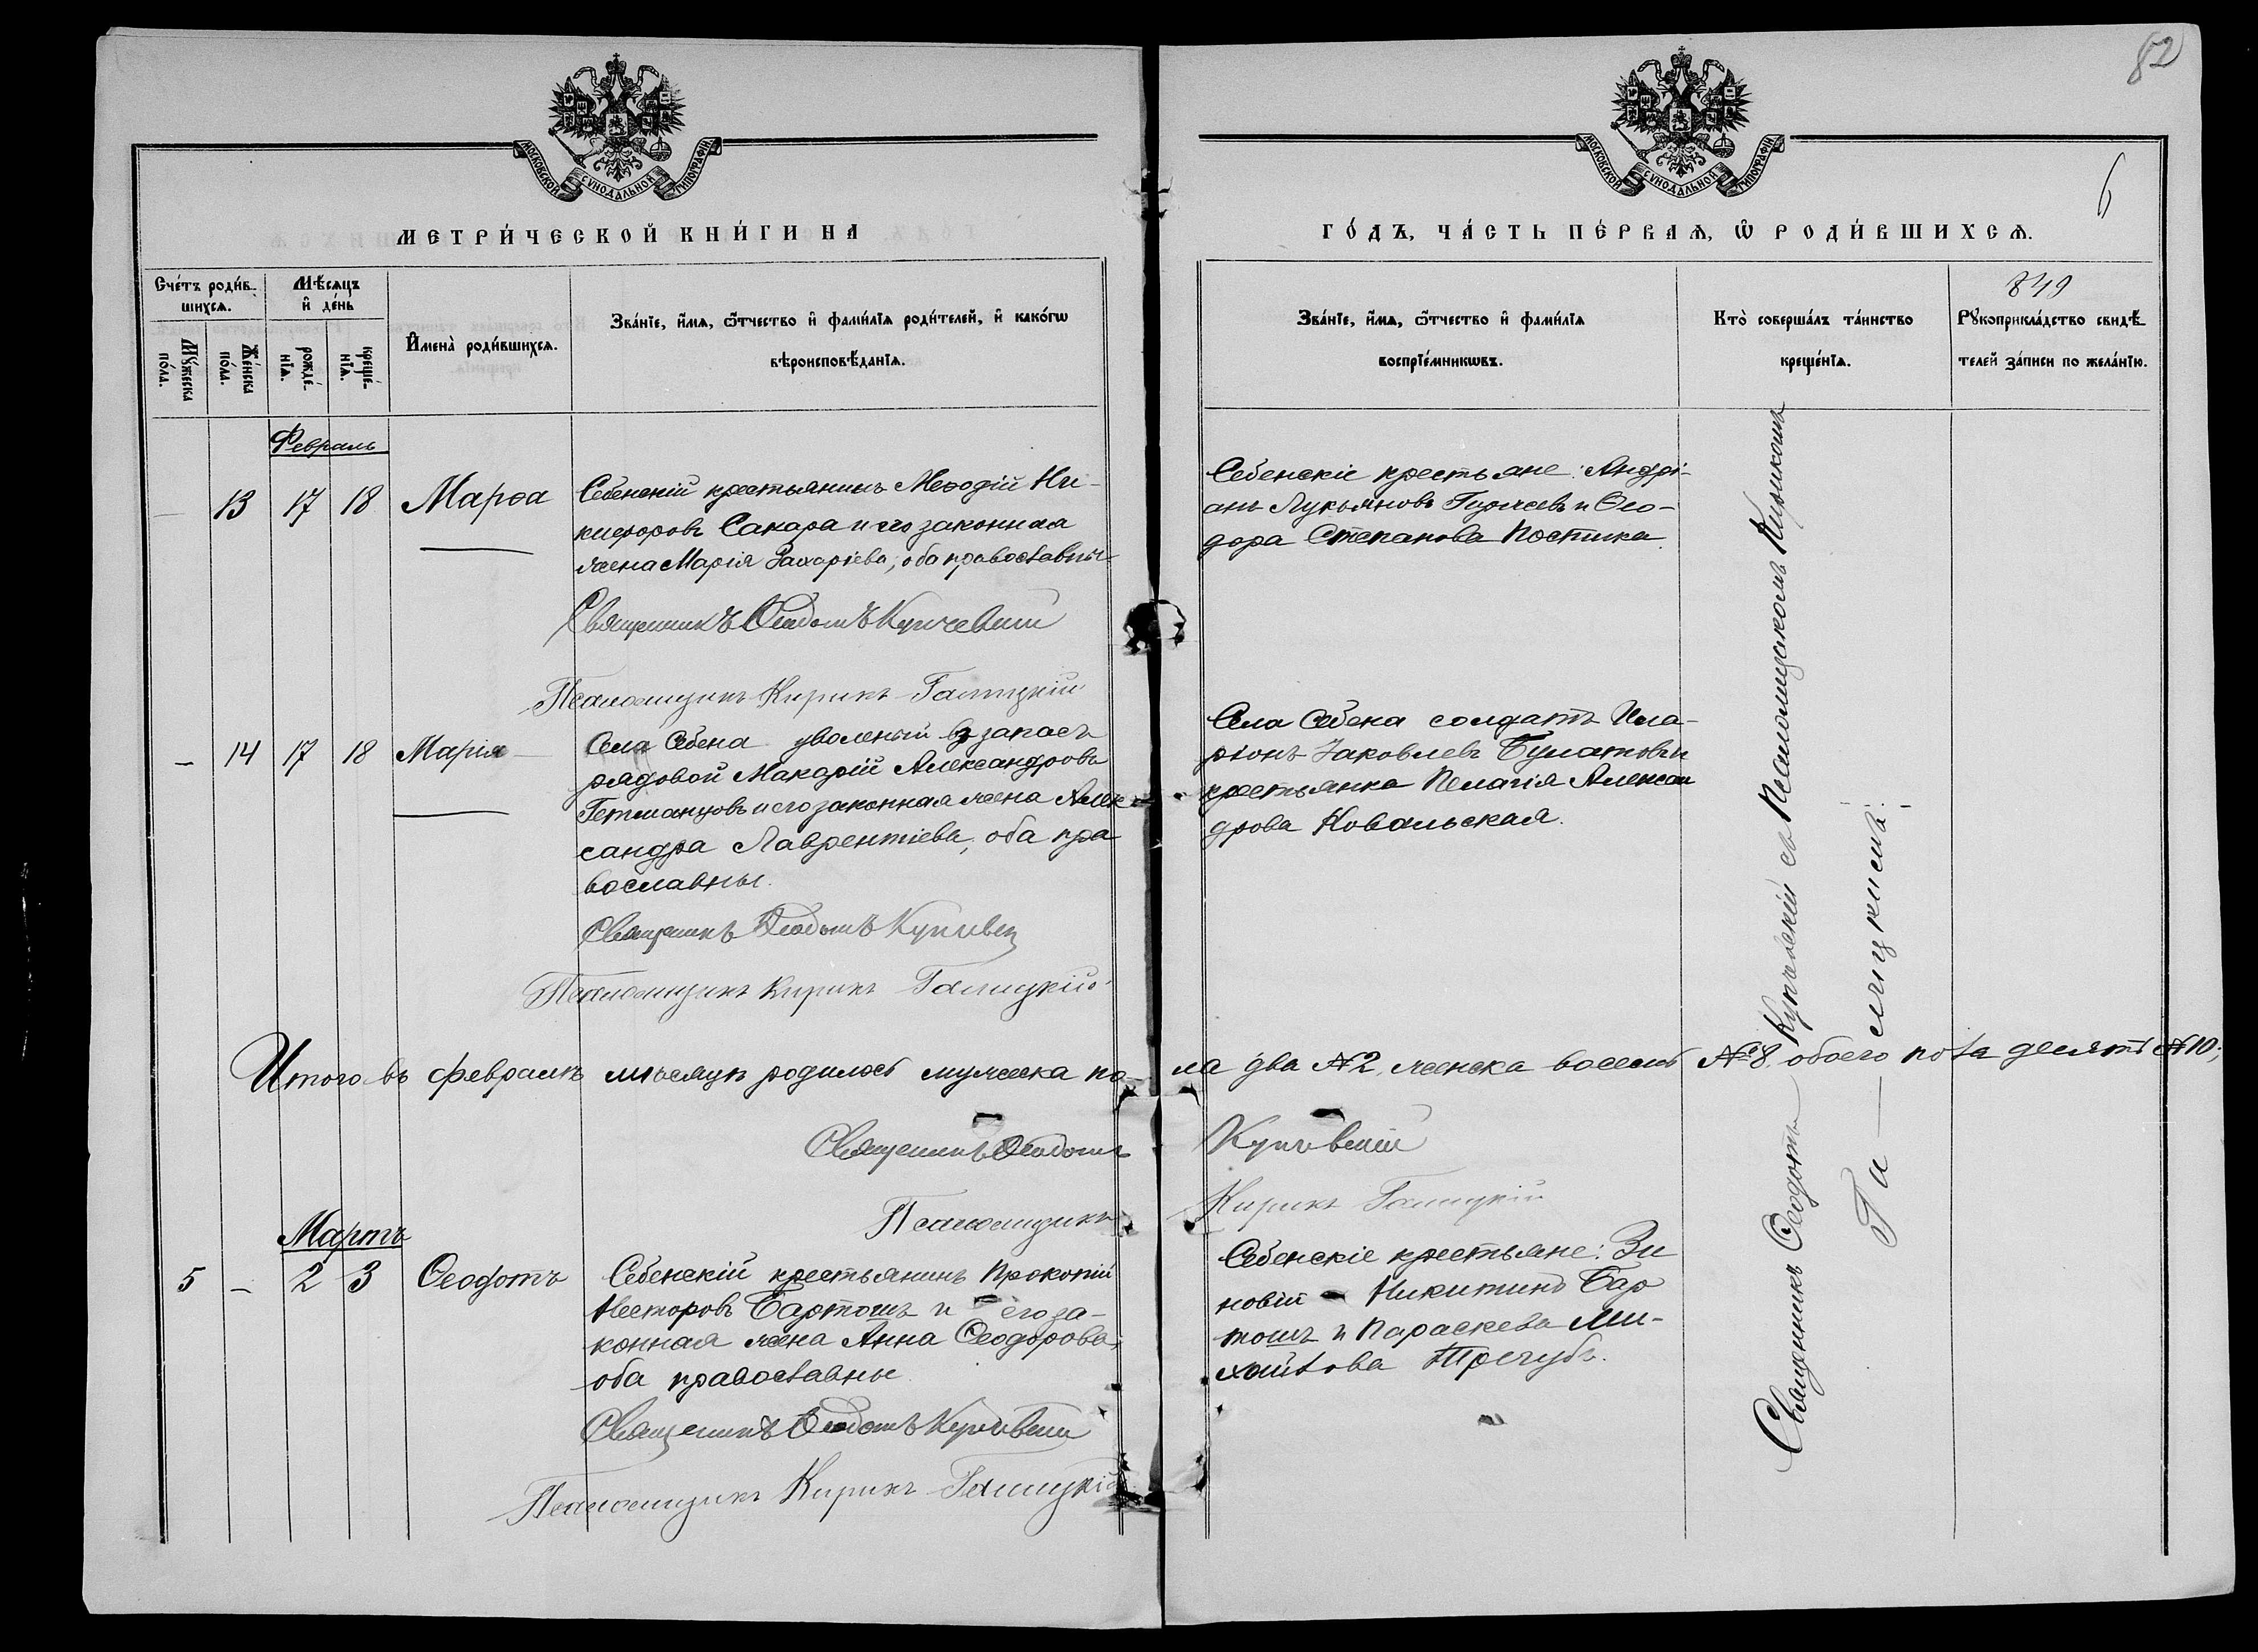 82
6
МОСКОВСКОЙ СѴНОДАЛЬНОЙ ТИПОГРАФІИ
МОСКОВСКОЙ СѴНОДАЛЬНОЙ ТИПОГРАФІИ
МЕТРИ́ЧЕСКОЙ КНИ́ГИ НА
ГО́ДЪ, ЧА́СТЬ ПЕ́РВАѦ, Ѡ РОДИ́ВШИХСѦ.
849
Счетъ роди́в-
шихсѧ.
Мꙋжеска по́ла.
Же́нска по́ла.
Мѣсѧцъ
и де́нь
рожде́-нїѧ.
креще́-нїѧ.
Имена̀ роди́вшихсѧ.
Зва́нїе, и́мѧ, ѻтчество и фами́лїѧ роди́телей, и како́гѡ
вѣроисповѣданїѧ.
Зва́нїе, и́мѧ, ѻтчество и фами́лїѧ
воспрїе́мникѡвъ.
Кто̀ соверша́лъ та́инство
креще́нїѧ.
Рꙋкоприкла́дство свидѣ-
телей за́писи по жела́нїю.
Февраль
— 13 17 18 Марѳа
Себенскій крестьянинъ Меѳодій Ни-
кифоровъ Сакара и его законная
жена Марія Захаріева, оба православны
Священникъ Ѳеодотъ Купчевскій
Псаломщикъ Кирикъ Галицкій
Себенскіе крестьяне: Андрі-
анъ Лукьяновъ и Ѳео-
дора Степанова Постика
— 14 17 18 Марія —
Села Себена уволеный въ запасъ
рядовой Макарій Александровъ
Гетманцовъ и его законная жена Алек-
сандра Лаврентіева, оба пра
вославны.
Священникъ Ѳеодотъ
Псаломщикъ Кирикъ Галицкій
Села Себена солдатъ Ила-
ріонъ Іаковлевъ Булатовъ и
крестьянка Пелагія Алексан
дрова Ковальская.
Итого въ февралѣ мѣсяцѣ родилось мужеска по-
ла два №2, женска восемь №8, обоего пола десять №10;
Священникъ Ѳеодотъ Купчевскій
Псаломщикъ Кирикъ Галицкій
Мартъ
5 — 2 3 Ѳеодотъ
Себенскій крестьянинъ Прокопій
Несторовъ Бартошъ и его за-
конная жена Анна Ѳеодорова,
оба православны
Священникъ Ѳеодотъ Купчевскій
Псаломщикъ Кирикъ Галицкій
Себенскіе крестьяне: Зи
новій Никитинъ Бар
тошъ и Параскева Ми-
хайлова
Священникъ Ѳеодотъ Купчевскій съ Псаломщикомъ Кирикомъ
Га — лицкимъ